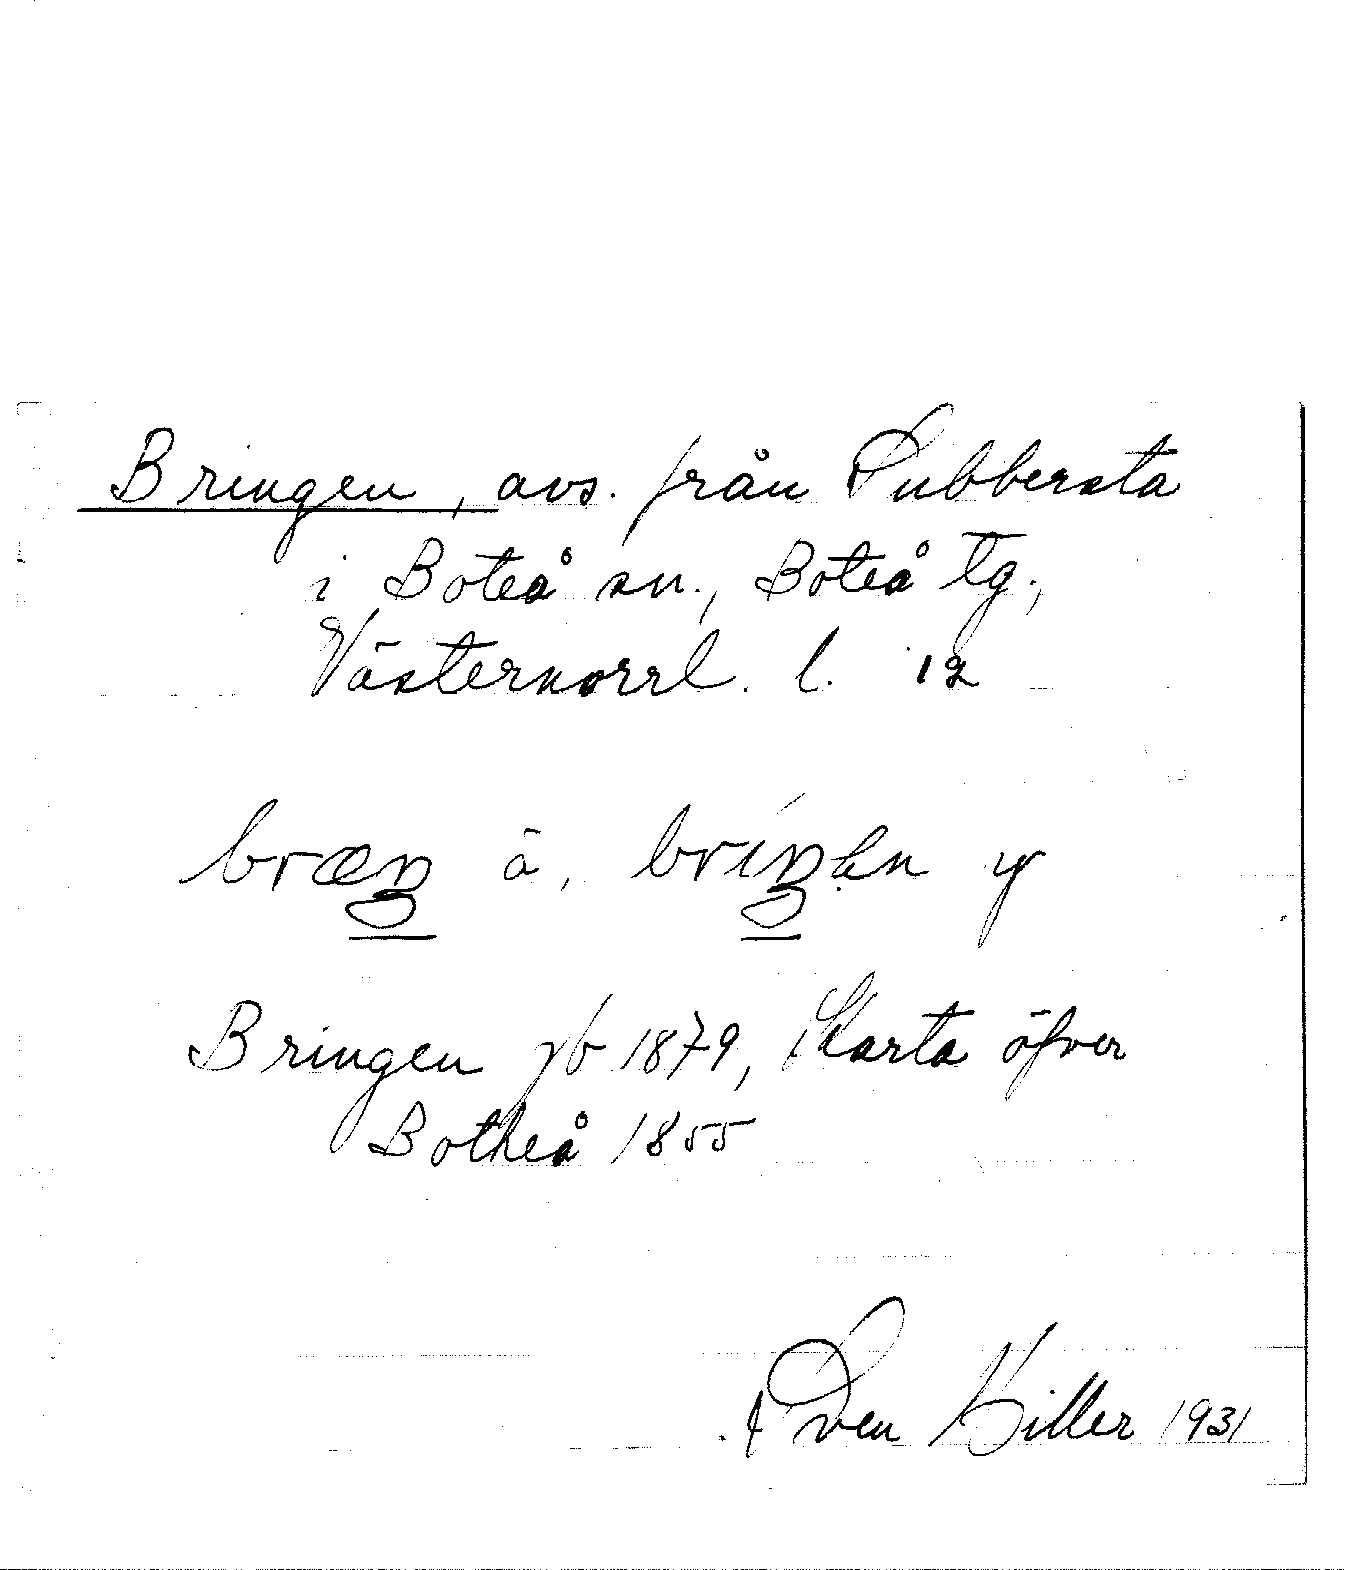 Bringen, avs. från Subbersta
i Boteå sn., Boteå tg.,
Västernorrl. l. 12
ä, y
Bringen jb 1879, Karta öfver
Botheå 1855
Sven Hiller 1931